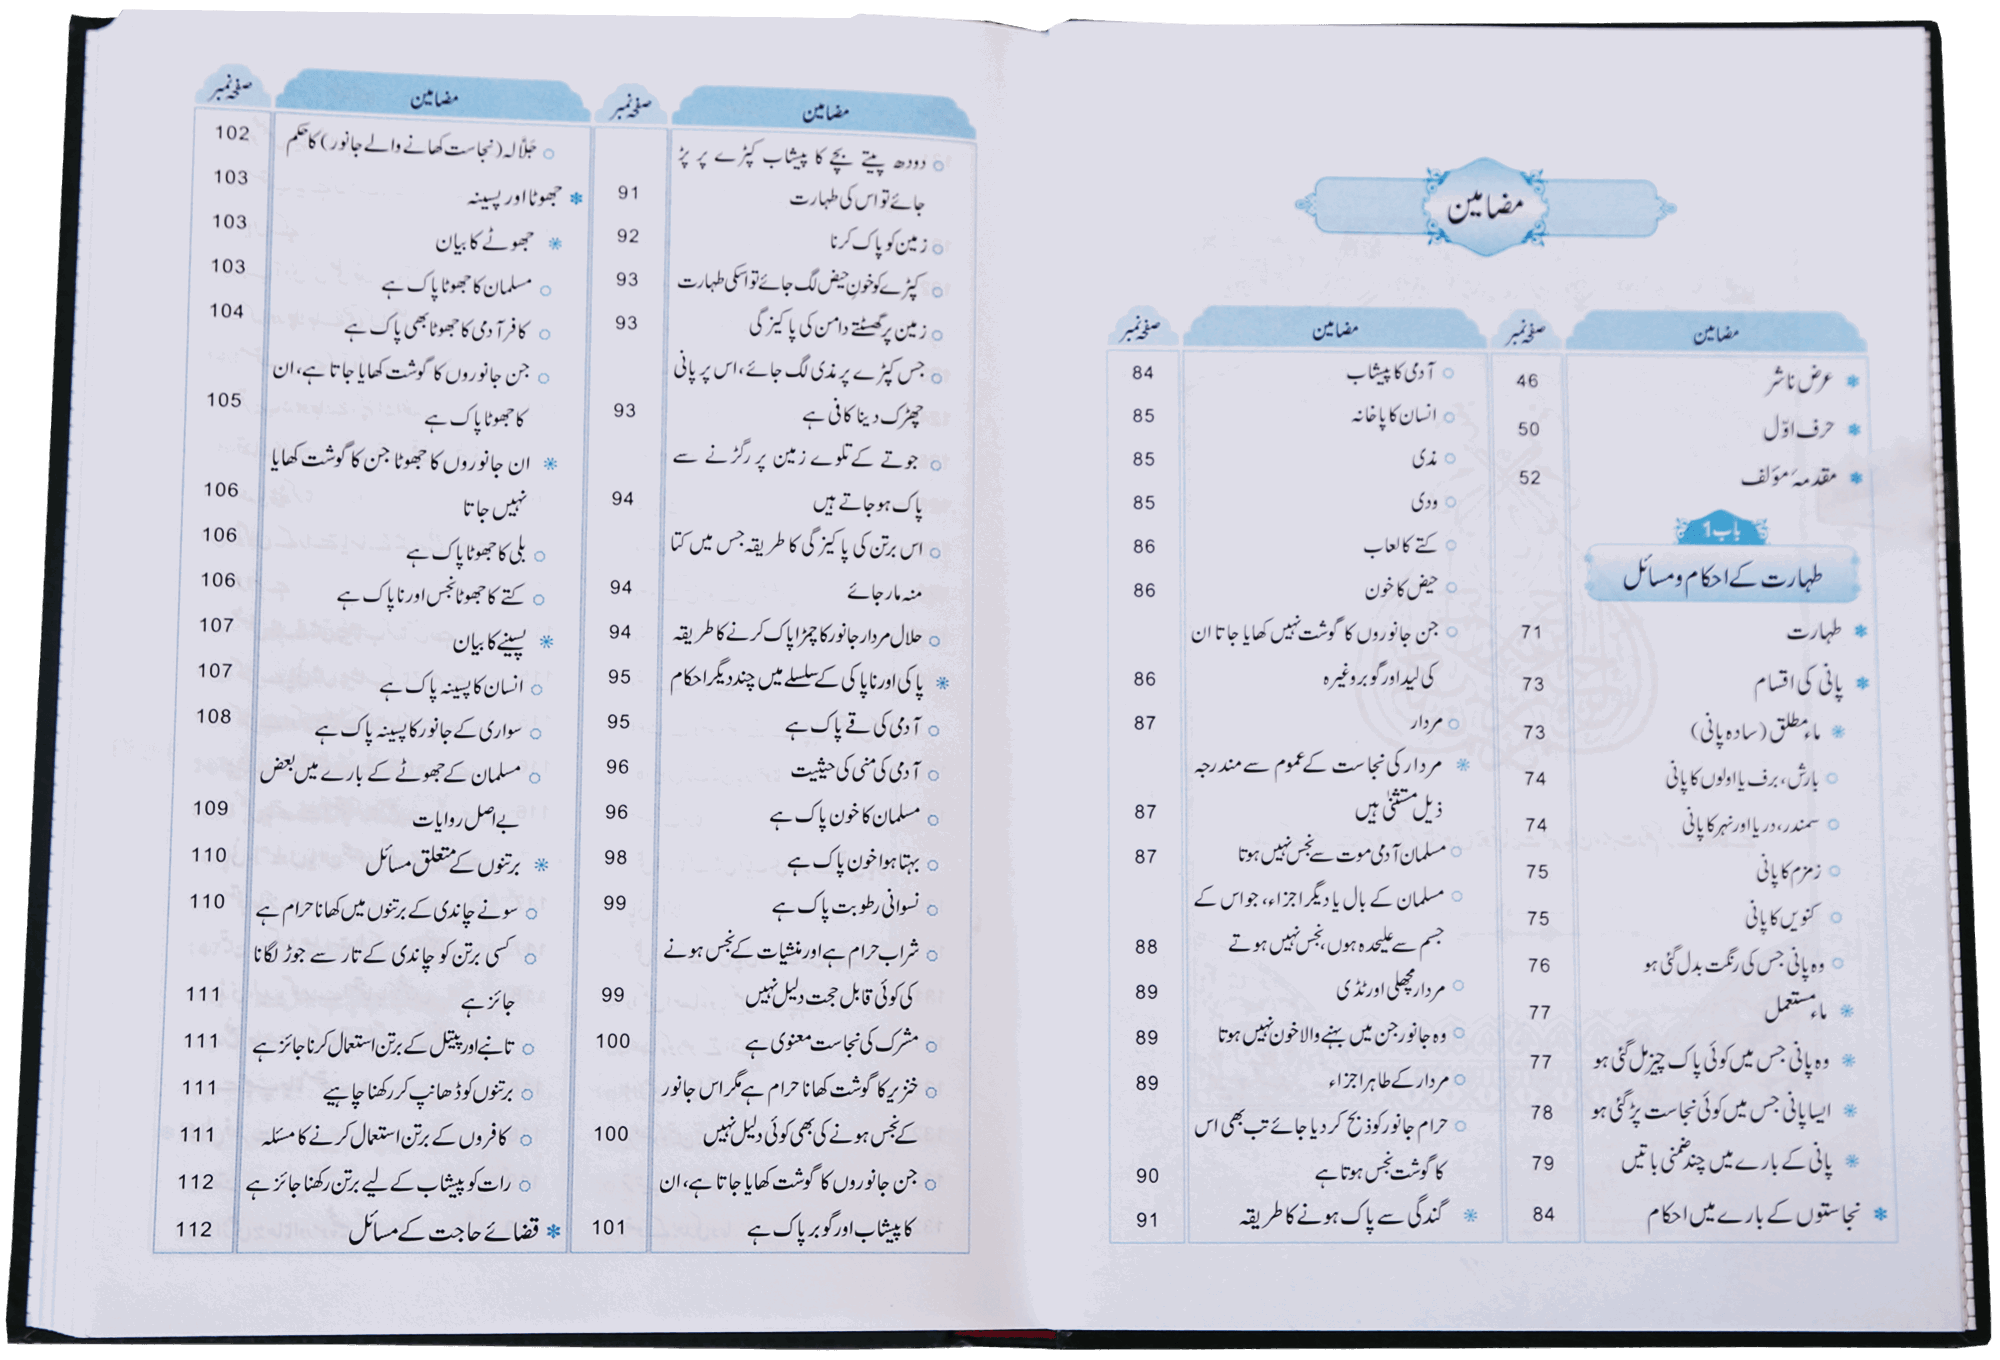 مضامین
مضامین صفحہ نمبر
عرض ناشر 46
حرف اوّل 50
مقدمۂ مؤلف 52
باب 1
طہارت کے احکام و مسائل
طہارت 71
پانی کی اقسام 73
ماء مطلق (سادہ پانی) 73
بارش، برف یا اولوں کا پانی 74
سمندر، دریا اور نہر کا پانی 74
زمزم کا پانی 75
کنویں کا پانی 75
وہ پانی جس کی رنگت بدل گئی ہو 76
ماء مستعمل 77
وہ پانی جس میں کوئی پاک چیز مل گئی ہو 77
ایسا پانی جس میں کوئی نجاست پڑ گئی ہو 78
پانی کے بارے میں چند ضمنی باتیں 79
نجاستوں کے بارے میں احکام 84
مضامین صفحہ نمبر
آدمی کا پیشاب 84
انسان کا پاخانہ 85
مذی 85
ودی 85
کتے کا لعاب 86
حیض کا خون 86
جن جانوروں کا گوشت نہیں کھایا جاتا ان
کی لید اور گوبر وغیرہ 86
مردار 87
مردار کی نجاست کے عموم سے مندرجہ
ذیل مستثنیٰ ہیں 87
مسلمان آدمی موت سے نجس نہیں ہوتا 87
مسلمان کے بال یا دیگر اجزاء، جو اس کے
جسم سے علیحدہ ہوں، نجس نہیں ہوتے 88
مردار مچھلی اور ٹڈی 89
وہ جانور جن میں بہنے والا خون نہیں ہوتا 89
مردار کے طاہر اجزاء 89
حرام جانور کو ذبح کر دیا جائے تب بھی اس
کا گوشت نجس ہوتا ہے 90
گندگی سے پاک ہونے کا طریقہ 91
مضامین صفحہ نمبر
دودھ پیتے بچے کا پیشاب کپڑے پر پڑ
جائے تو اس کی طہارت 91
زمین کو پاک کرنا 92
کپڑے کو خونِ حیض لگ جائے تو اسکی طہارت 93
زمین پر گھسٹتے دامن کی پاکیزگی 93
جس کپڑے پر مذی لگ جائے، اس پر پانی
چھڑک دینا کافی ہے 93
جوتے کے تلوے زمین پر رگڑنے سے
پاک ہو جاتے ہیں 94
اس برتن کی پاکیزگی کا طریقہ جس میں کتا
منہ مار جائے 94
حلال مردار جانور کا چمڑا پاک کرنے کا طریقہ 94
پاکی اور ناپاکی کے سلسلے میں چند دیگر احکام 95
آدمی کی قے پاک ہے 95
آدمی کی منی کی حیثیت 96
مسلمان کا خون پاک ہے 96
بہتا ہوا خون پاک ہے 98
نسوانی رطوبت پاک ہے 99
شراب حرام ہے اور منشیات کے نجس ہونے
کی کوئی قابل حجت دلیل نہیں 99
مشرک کی نجاست معنوی ہے 100
خنزیر کا گوشت کھانا حرام ہے مگر اس جانور
کے نجس ہونے کی بھی کوئی دلیل نہیں 100
جن جانوروں کا گوشت کھایا جاتا ہے، ان
کا پیشاب اور گوبر پاک ہے 101
مضامین صفحہ نمبر
جَلّالہ (نجاست کھانے والے جانور) کا حکم 102
جھوٹا اور پسینہ 103
جھوٹے کا بیان 103
مسلمان کا جھوٹا پاک ہے 103
کافر آدمی کا جھوٹا بھی پاک ہے 104
جن جانوروں کا گوشت کھایا جاتا ہے، ان
کا جھوٹا پاک ہے 105
ان جانوروں کا جھوٹا جن کا گوشت کھایا
نہیں جاتا 106
بلی کا جھوٹا پاک ہے 106
کتے کا جھوٹا نجس اور ناپاک ہے 106
پسینے کا بیان 107
انسان کا پسینہ پاک ہے 107
سواری کے جانور کا پسینہ پاک ہے 108
مسلمان کے جھوٹے کے بارے میں بعض
بے اصل روایات 109
برتنوں کے متعلق مسائل 110
سونے چاندی کے برتنوں میں کھانا حرام ہے 110
کسی برتن کو چاندی کے تار سے جوڑ لگانا
جائز ہے 111
تانبے اور پیتل کے برتن استعمال کرنا جائز ہے 111
برتنوں کو ڈھانپ کر رکھنا چاہیے 111
کافروں کے برتن استعمال کرنے کا مسئلہ 111
رات کو پیشاب کے لیے برتن رکھنا جائز ہے 112
قضائے حاجت کے مسائل 112